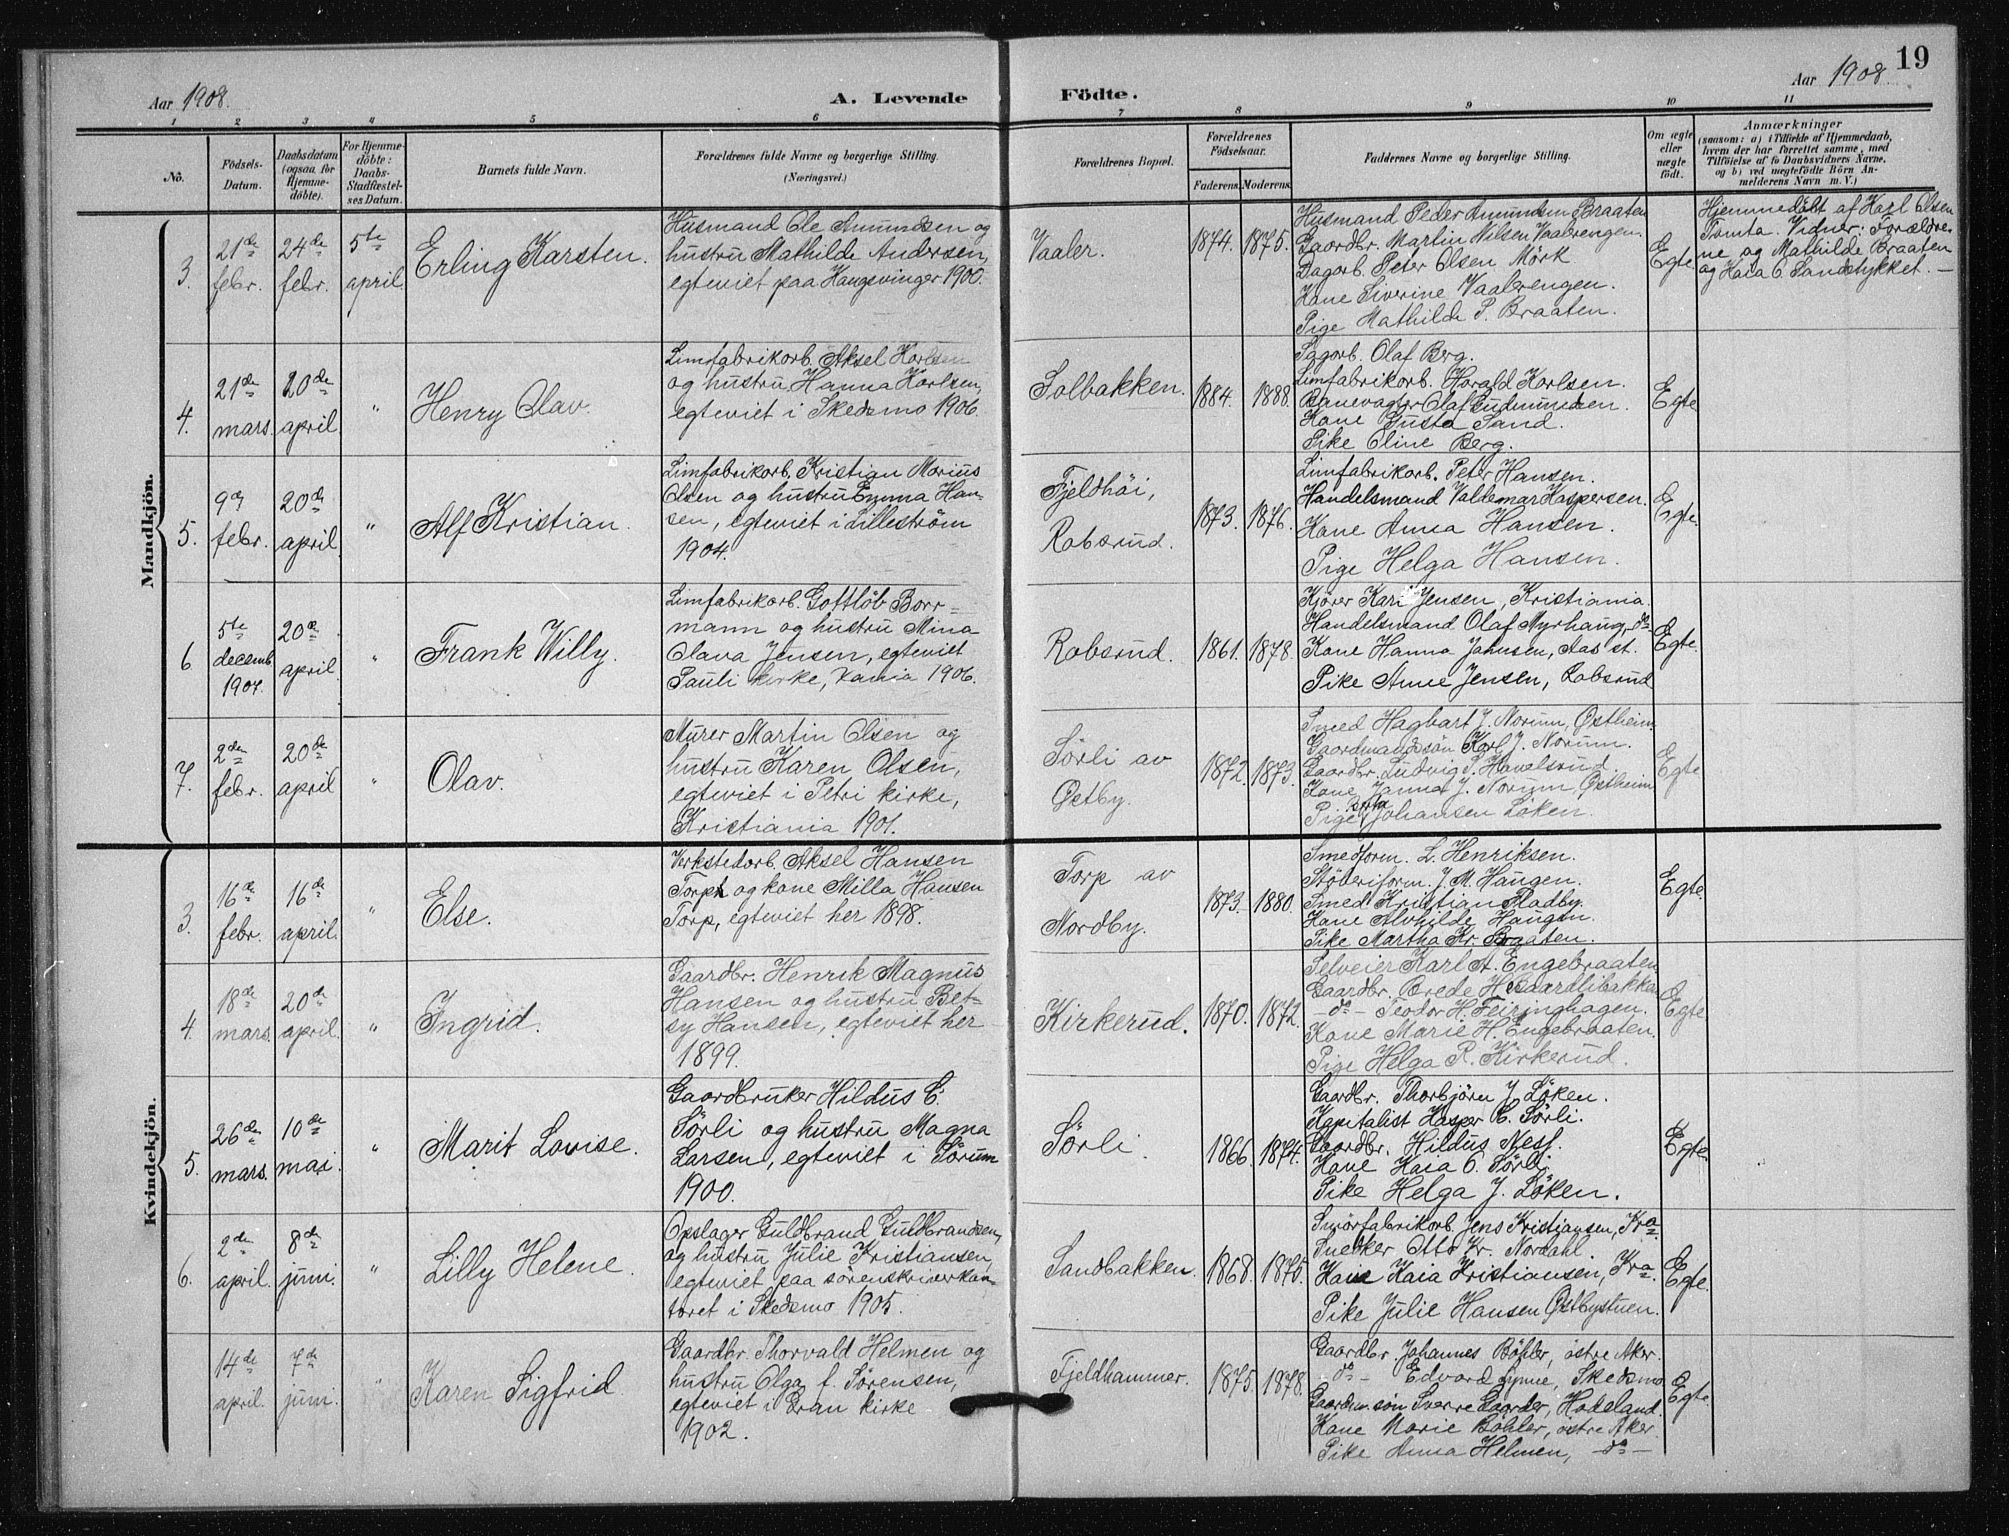 19
Aar 1908.
A. Levende Födte.
Aar 1908.
1 2 3 4 5 6 7 8 9 10 11
No.
Födsels-
Datum.
Daabsdatum
(ogsaa for
Hjemme-
döbte).
For Hjemme-
döbte:
Daabs-
Stadfæstel-
ses Datum.
Barnets fulde Navn.
Forældrenes fulde Navne og borgerlige Stilling.
(Næringsvei.)
Forældrenes Bopæl.
Forældrenes
Födselsaar.
Faderens. Moderens.
Faddernes Navne og borgerlige Stilling.
Om ægte
eller
uægte
födt.
Anmærkninger
(saasom: a) i Tilfælde af Hjemmedaab,
hvem der har forrettet samme, med
Tilföielse af to Daabsvidners Navne,
og b) ved uægtefödte Börn An-
melderens Navn m. V.)
Mandkjön.
3.
21de
febr.
24de
febr.
5te
april
Erling Karsten.
Husmand Ole Amundsen og
hustru Mathilde Andersen,
egteviet paa Kongsvinger 1900.
Vaaler.
1874. 1875.
Husmand Peder Amundsen Braaten
Gaardbr. Martin Nilsen Vaalerengen.
Dagarb. Peter Olsen Mörk
Kone Siverine Vaalerengen.
Pige Mathilde P. Braaten.
Egte
Hjemmedöbt af Karl Olsen
Tomta. Vidner: Forældre-
ne og Mathilde Braaten
og Kaia O Sandstykket. —
4.
21de
mars.
20de
april.
"
Henry Olav.
Limfabrikarb. Aksel Karlsen
og hustru Hanna Karlsen,
egteviet i Skedsmo 1906.
Solbakken.
1884. 1888.
Sagarb. Olaf Berg.
Limfabrikarb. Harald Karlsen.
Banevagter Olaf Gudmundsen.
Kone Gusta Sand.
Pike Oline Berg.
Egte
5.
9de
febr.
20de
april.
"
Alf Kristian.
Limfabrikarb. Kristian Marius
Olsen og hustru Emma Han-
sen, egteviet i Lilleström
1904.
Fjeldhöi,
Robsrud.
1873. 1876.
Limfabrikarb. Peter Hansen.
Handelsmand Valdemar Kaspersen.
Kone Anna Hansen.
Pige Helga Hansen.
Egte.
6
5te
decemb.
1907.
20de
april.
"
Frank Willy.
Limfabrikarb. Gottlöb Borr-
mann og hustru Mina
Olava Jensen, egteviet
Pauli kirke, Kania 1906.
Robsrud.
1861. 1878.
Kjörer Kari Jensen, Kristiania.
Handelsmand Olaf Myrhaug, do
Kone Hanna Johnsen, Aas st.
Pike Anne Jensen, Robsrud
Egte.
7.
2den
febr.
20de
april
"
Olav.
Murer Martin Olsen og
hustru Karen Olsen,
egteviet i Petri kirke,
Kristiania 1901.
Sörli av
Østby.
1872. 1873.
Smed Hagbart J. Norum, Østheim.
Gaardmandssön Karl J. Norum.
Gaardbr. Ludvig S. Havelsrud.
Kone Janna J. Norum, Østheim
Pige Johansen Löken.
Egte
Kvindekjön.
3.
16de
febr.
16de
april.
"
Else.
Verkstedarb. Aksel Hansen
Torp og kone Milla Hansen
Torp, egteviet her 1898.
Torp av
Nordby.
1873. 1880.
Smedform. L. Henriksen.
Stöveriform. J. M. Haugen.
Smed Kristian Fladby.
Kone Alvhilde Haugen.
Pike Martha Kr. Braaten.
Egte.
4.
18de
mars.
20de
april.
"
Ingrid.
Gaardbr. Henrik Magnus
Hansen og hustru Bet-
sy Hansen, egteviet her
1899.
Kirkerud.
1870. 1872.
Selveier Karl A. Engebraaten
Gaardbr. Brede H Baardlibakken
— do — Teodor H. Feiringhagen.
Kone Marie H. Engebraaten.
Pige Helga R. Kirkerud.
Egte
5.
26de
mars.
10de
mai.
"
Marit Lovise.
Gaardbruker Hildus C.
Sörli og hustru Magna
Larsen, egteviet i Sörum
1900.
Sörli.
1866. 1874.
Gaardbr. Thorbjörn J. Löken.
Kapitalist Kasper C. Sörli.
Gaardbr. Hildus Nesf.
Kone Kaia O. Sörli.
Pike Helga J. Löken.
Egte.
6.
2de
april.
8de
juni.
"
Lilly Helene.
Opslager Guldbrand Guldbrandsen,
og hustru Julie Kristiansen,
egteviet paa sörenskriverkon-
toret i Skedsmo 1905.
Sandbakken.
1868. 1875.
Smörfabrikarb. Jens Kristiansen, Kra.
Snedker Otto Kr. Nordahl.
Kone Kaia Kristiansen, Kra.
Pike Julie Hansen Østbystuen.
Egte.
14de
april.
7de
juni.
"
Karen Sigfrid.
Gaardbr. Thorvald Helmen og
hustru Olga f. Sörensen,
egteviet i Gran kirke
1902.
Fjeldhammer.
1875. 1878.
Gaardbr. Johannes Böhler, östre Aker.
— do — Edvard Lynne, Skedsmo
Gaardm. sön Sverre Gaarder, Hadeland.
Kone Marie Böhler, östre Aker.
Pike Anna Helmen, — do —
Egte.